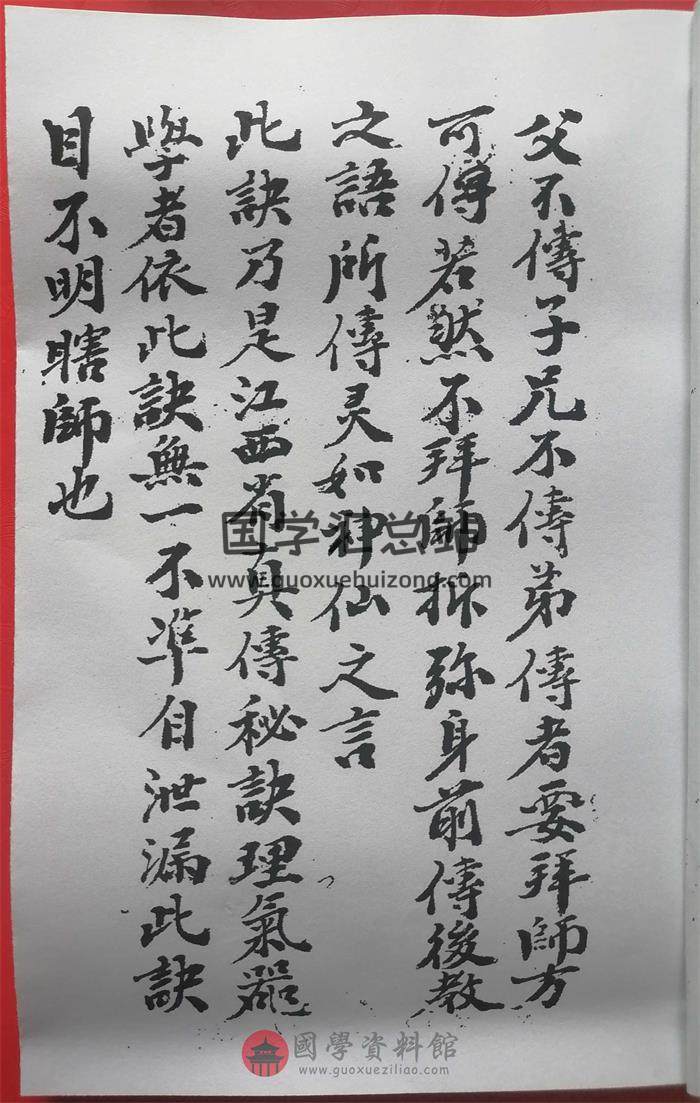 父不傳子兄不傳弟傳者要拜師方
可傳若然不拜師拆弥身前傳後教
之語所傳灵如神仙之言
此訣乃是江西省真傳秘訣理氣噐
學者依此訣無一不準自泄漏此訣
目不明瞎師也
国学汇总站
www.guoxuehuizong.com
國學資料館
www.guoxueziliao.com